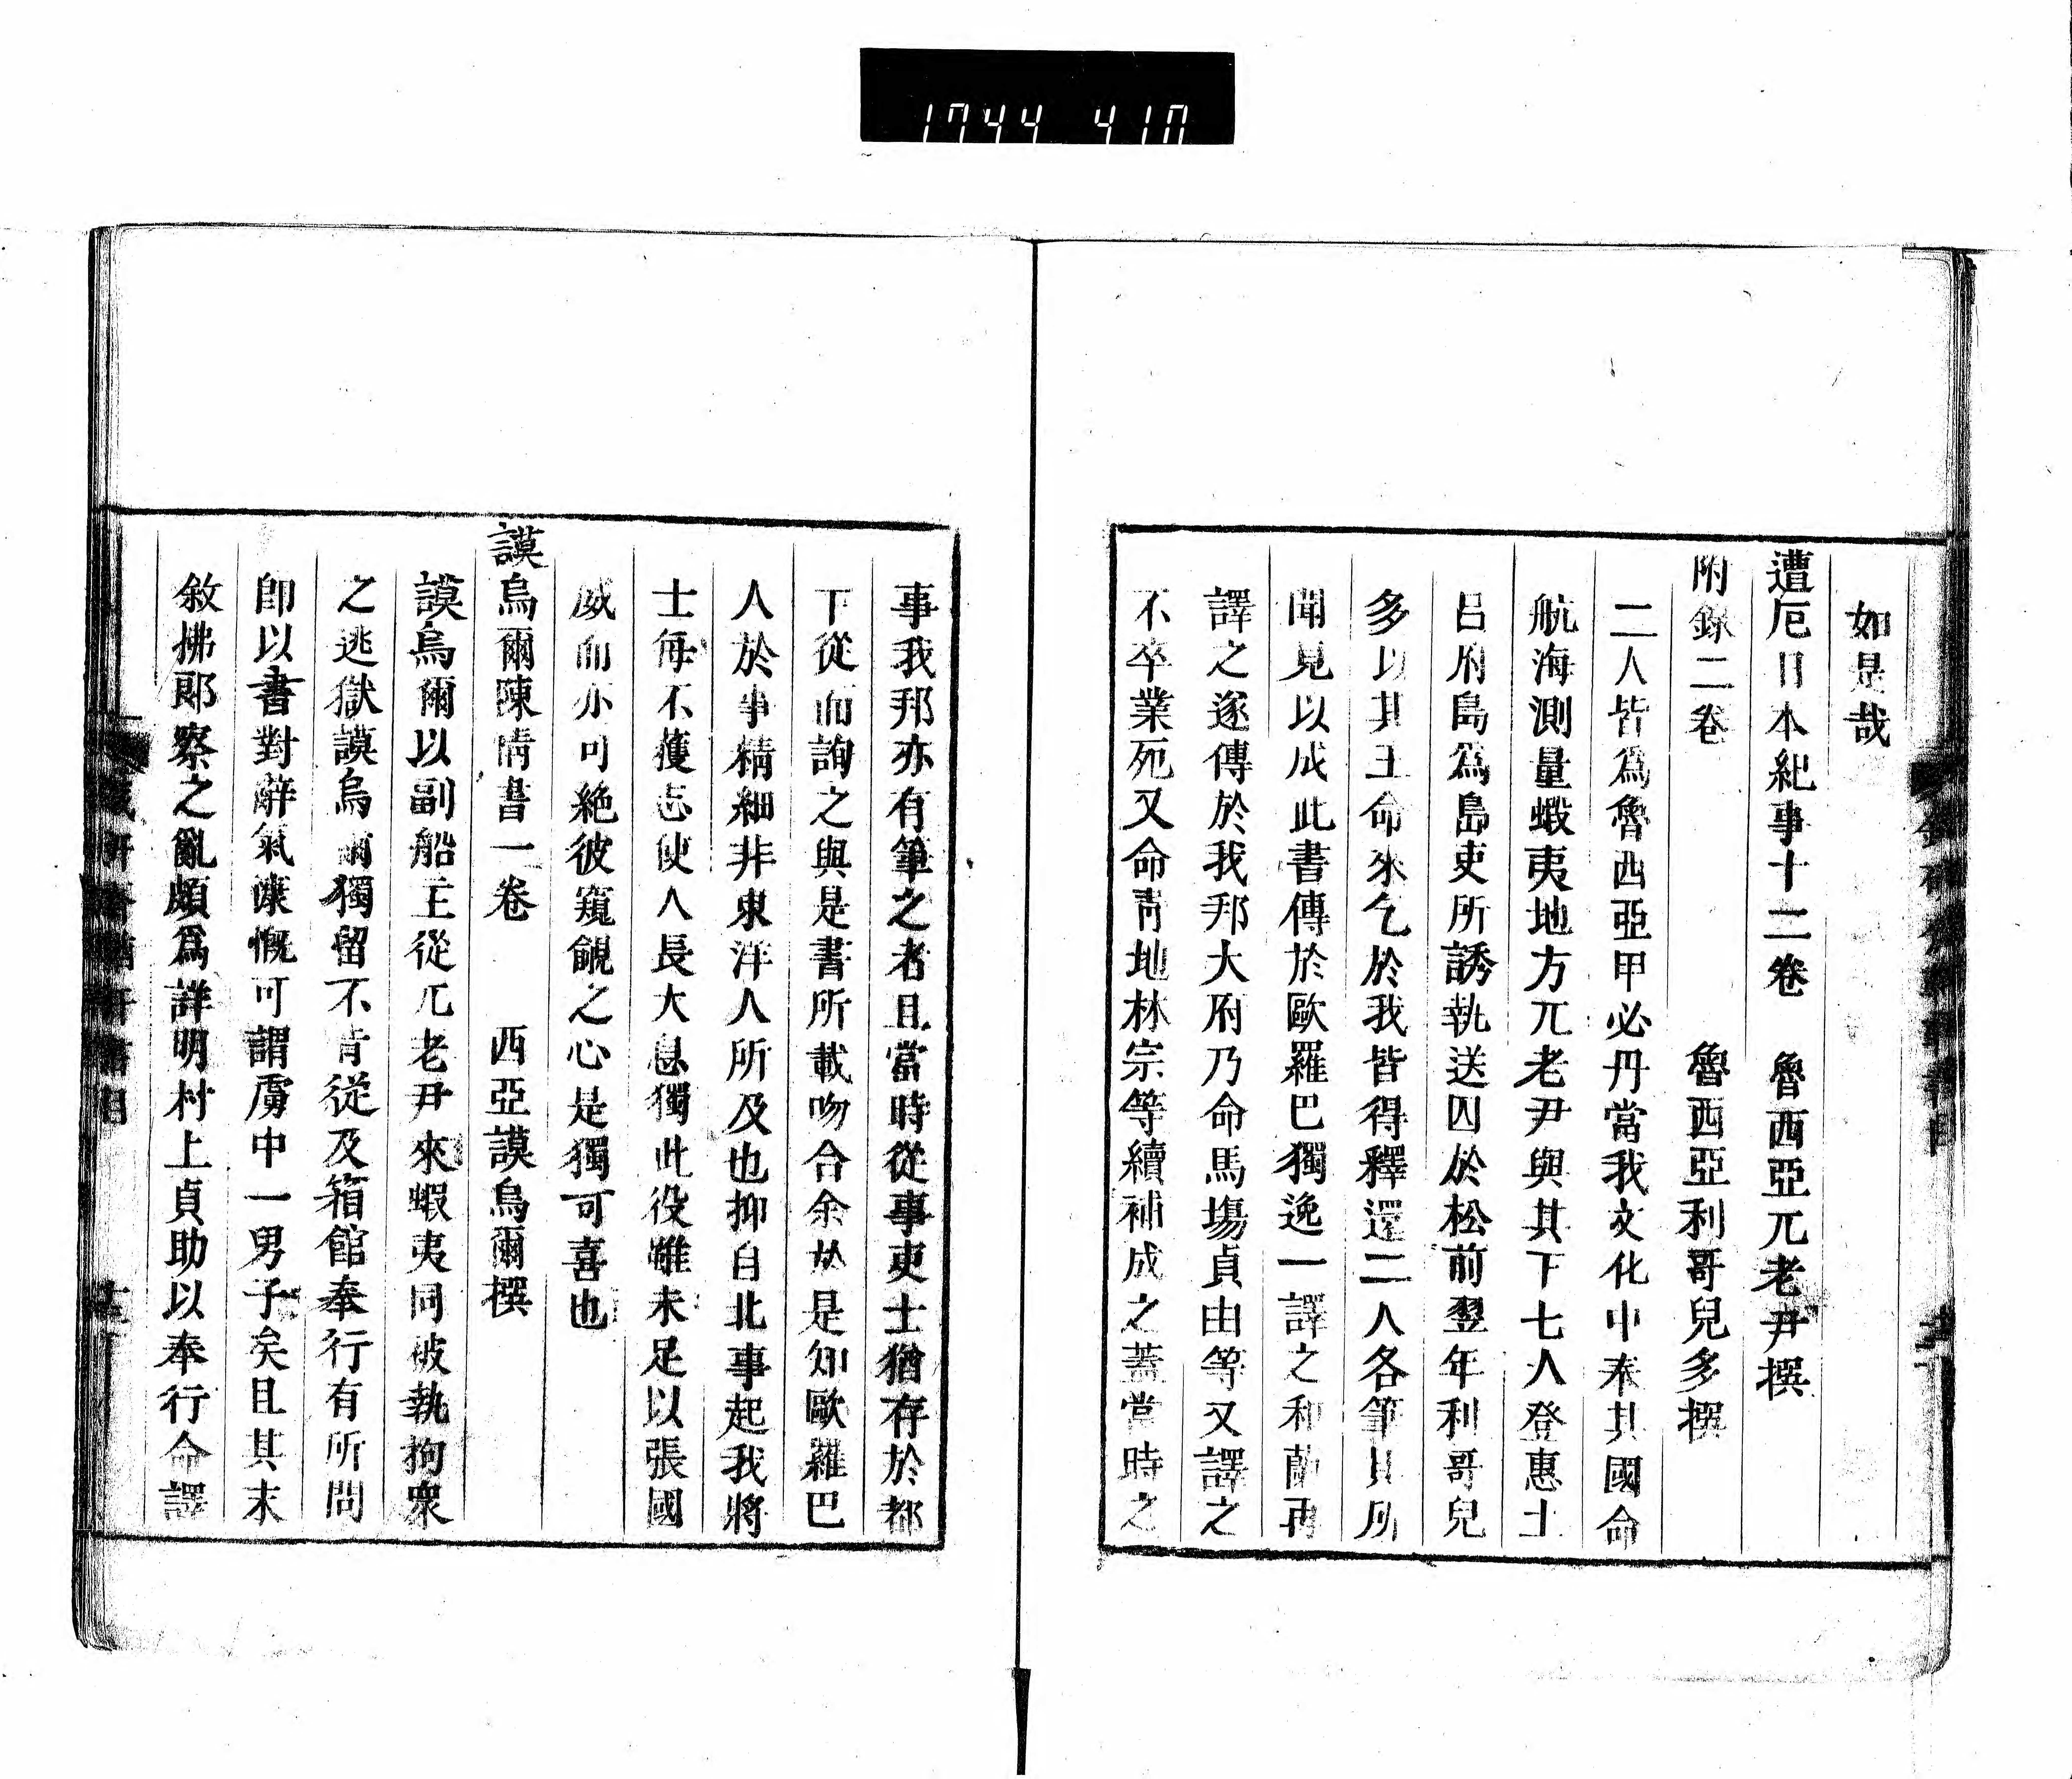 1744 410
如是哉
遭厄日本紀事十二卷　魯西亞兀老尹撰
附錄二卷　魯西亞利哥兒多撰
二人皆爲魯西亞甲必丹當我文化中奉其國命
航海測量蝦夷地方兀老尹與其下七人登惠土
呂府島爲島吏所誘執送囚於松前翌年利哥兒
多以其王命來乞於我皆得釋還二人各筆其所
聞見以成此書傳於歐羅巴獨逸一譯之和蘭再
譯之遂傳於我邦大府乃命馬場貞由等又譯之
不卒業死又命靑地林宗等續補成之蓋當時之
事我邦亦有筆之者且當時從事吏士猶存於都
下從而詢之與是書所載吻合余於是知歐羅巴
人於事精細非東洋人所及也抑自北事起我將
士每不獲志使人長大息獨此役雖未足以張國
威而亦可絶彼窺覦之心是獨可喜也
謨烏爾陳情書一卷　西亞謨烏爾撰
謨烏爾以副船主從兀老尹來蝦夷同被執拘衆
之逃獄謨烏爾獨留不肯從及箱館奉行有所問
卽以書對辭氣慷慨可謂虜中一男子矣且其末
敘拂郎察之亂頗爲詳明村上貞助以奉行命譯